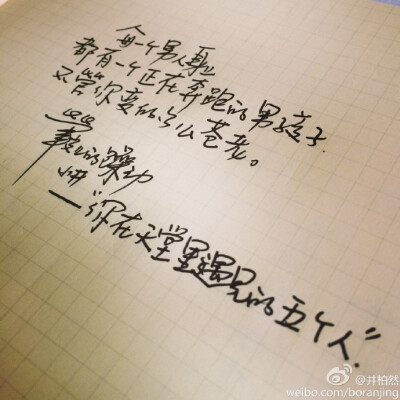 每一个男人身上
都有一个正在奔跑的男孩子.
不管你变的多么苍老。
的躁动
小井
—"你在天堂里遇见的五个人."
@井柏然
weibo.com/boranjing